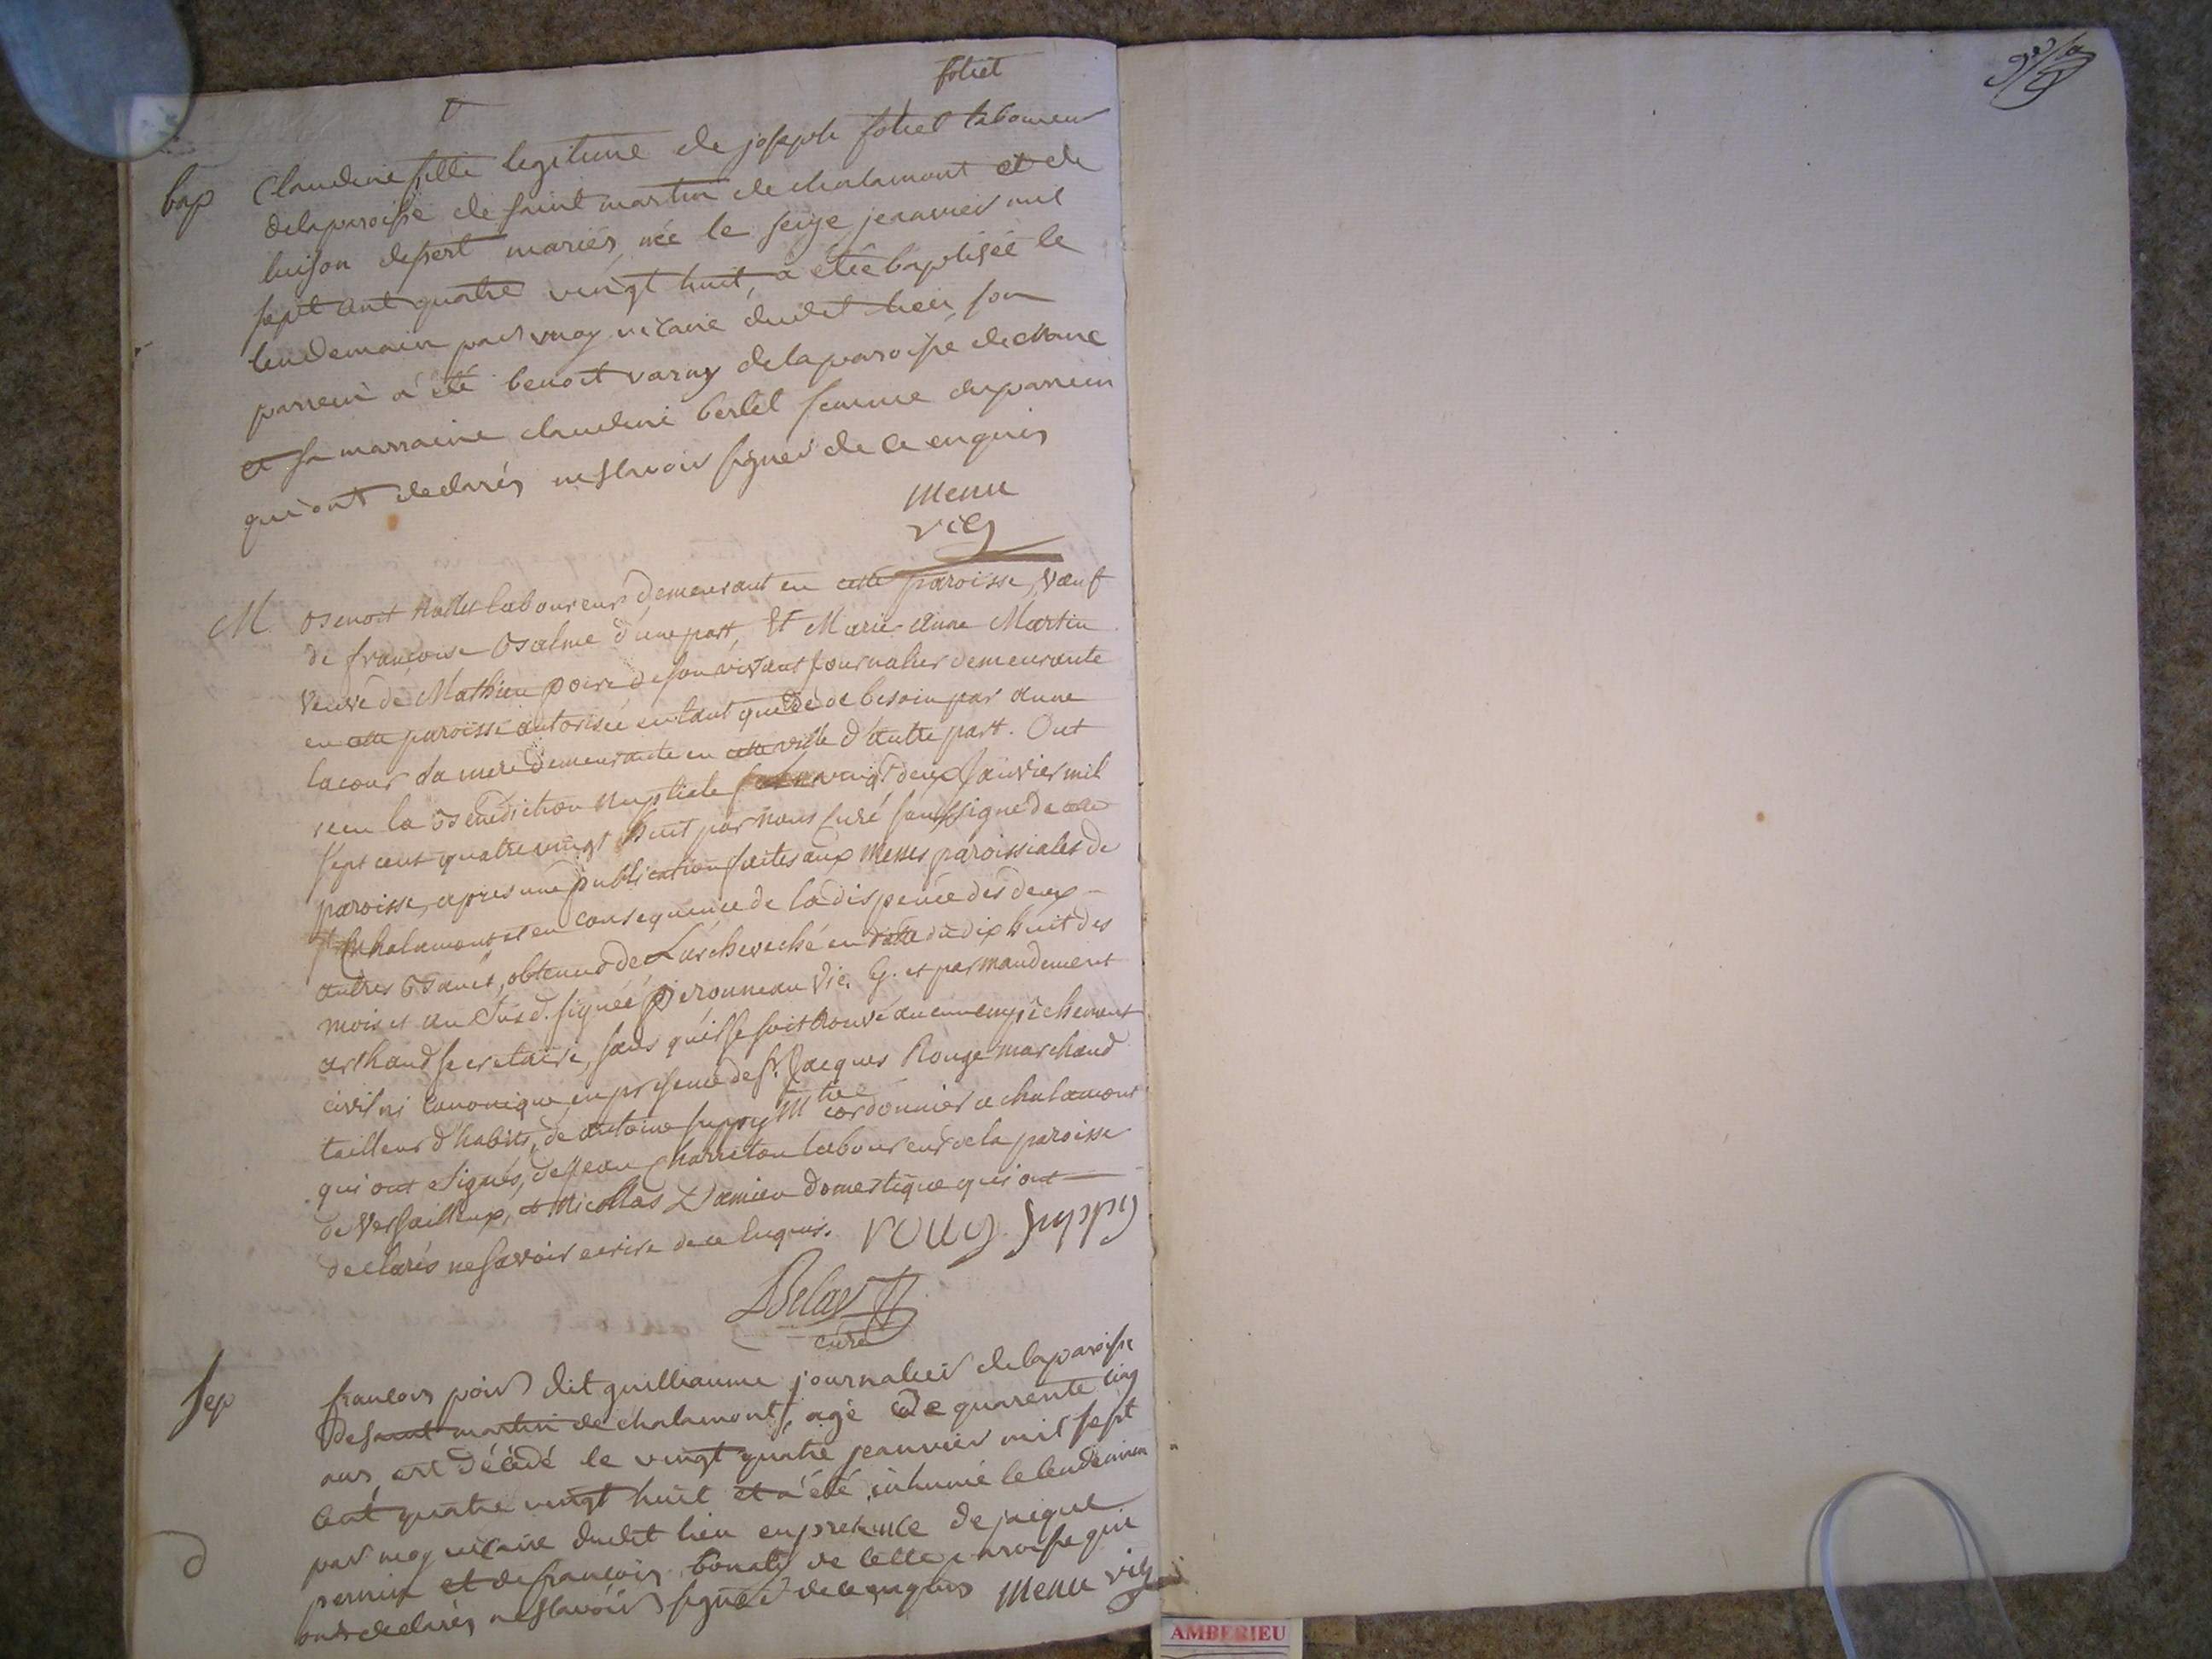 foliet
bap Claudine fille legitime de joseph foliet laboureur
delaparoisse de saint martin de chalamont et de
luison desfert mariés, née le seize jeanvier mil
sept cent quatre vingt huit, a étée baptisée le
lendemain par moy vicaire dudit lieu, son
parrein a été benoit varny delaparoisse de
et sa marraine claudine berlet femme duparrein
qui ont declarés nesçavoir signer de ce enquis
menu
vic
M Benoit laboureur demeurant en cette paroisse, veuf
de francoise Balme d'une part, Et Marie Anne Martin
veuve de Mathieu poire de son vivant Journalier demeurante
en cette paroisse autorisée entant que de besoin par anne
lacour sa mere demeurante en cette ville d'autre part. Ont
recu la Benediction Nuptiale vingt deux Janvier mil
sept cent quatrevingt huit par nous Curé soussigné de cette
paroisse, apres une publication faites aux Messes paroissiales de
Chalamont, et en consequence de la dispence des deux
autres Bans, obtenue de L'archeveché en date du dix huit des
mois et an susd. signée Vic. G. et par mandement
arthaud secretaire, sans qu'il se soit trouvé aucun empêchement
civil ni canonique, en presence de Sr. Jacques Rouge marchand
tailleur d'habits, de antoine suppy Mtre cordonnier a chalamont
qui ont signés, de Jean Charreton laboureur de la paroisse
de Versailleux, et Nicollas Damien domestique qui ont
declarés ne savoir ecrire de ce Enquis. rouge Suppy
curé
sep francois poire dit guilliaume journalier delaparoisse
de saint martin de chalamont, agé de quarente cinq
ans, est décédé le vingt quatre jeanvier mil sept
cent quatre vingt huit et a été inhumé le lendemain
par moy vicaire dudit lieu en presence de jacque
pernin et de francois bonaty de cette paroisse qui
ont declarés nesçavoir signer de ce enquis menu vic
AMBERIEU